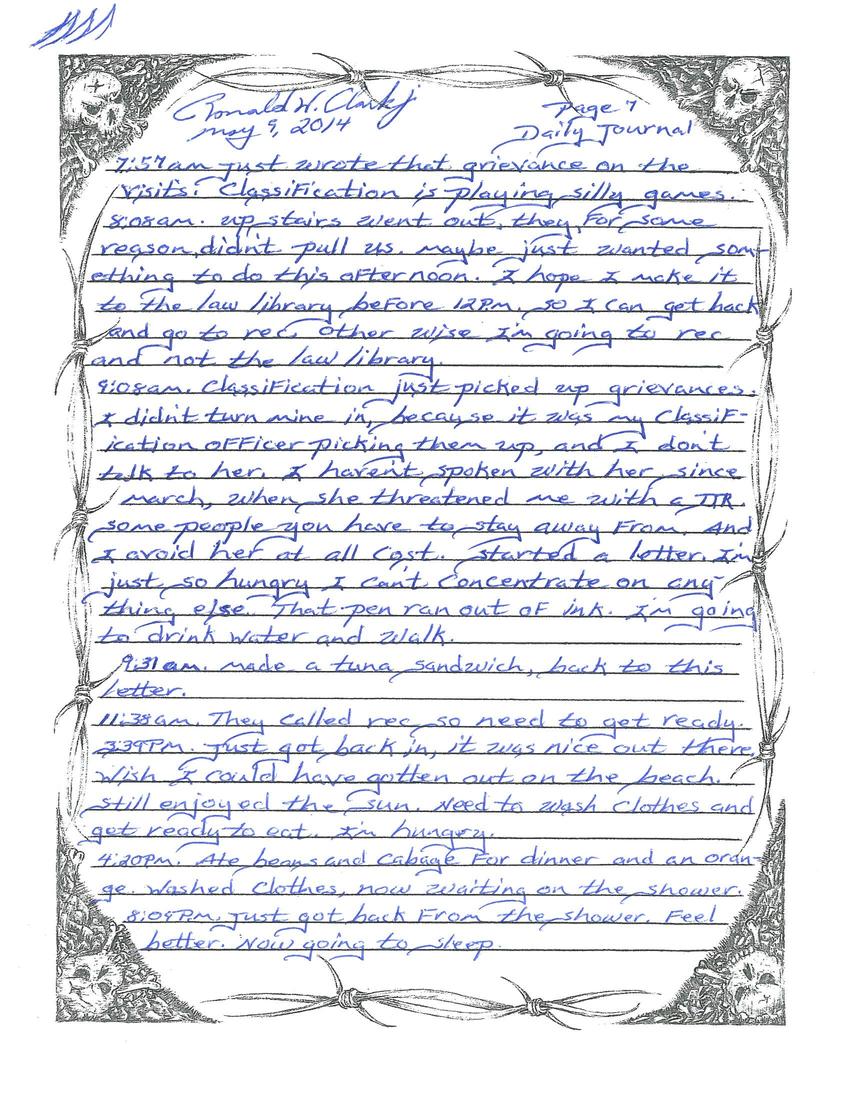 Ronald W. Clark Jr
Page 7
May 9, 2014
Daily Journal
7:57am Just wrote that grievance on the
visits. Classification is playing silly games.
8:08am. up stairs went out, they, For some
reason, didn't pull us. maybe just wanted som-
ething to do this afternoon. I hope I make it
to the law library before 12Pm. so I can get back
and go to rec. Other wise I'm going to rec
and not the law library.
9:08am. Classification just picked up grievances.
I didn't turn mine in, because it was my Classif-
ication officer picking them up, and I don't
talk to her. I haven't spoken with her since
March, when she threatened me with a DR.
some people you have to stay away From. And
I avoid her at all Cost. Started a letter. I'm
just so hungry I can't Concentrate on any-
thing else. That pen ran out of ink. I'm going
to drink water and walk.
9:31am. made a tuna sandwich, back to this
letter.
11:38am. They called rec so need to get ready.
3:39Pm. Just got back in, it was nice out there,
Wish I could have gotten out on the beach.
still enjoyed the sun. Need to wash Clothes and
get ready to eat. I'm hungry.
4:20Pm. Ate beans and Cabage For dinner and an oran-
ge. Washed Clothes, now waiting on the shower.
8:09Pm. Just got back From the shower. Feel
better. Now going to sleep.